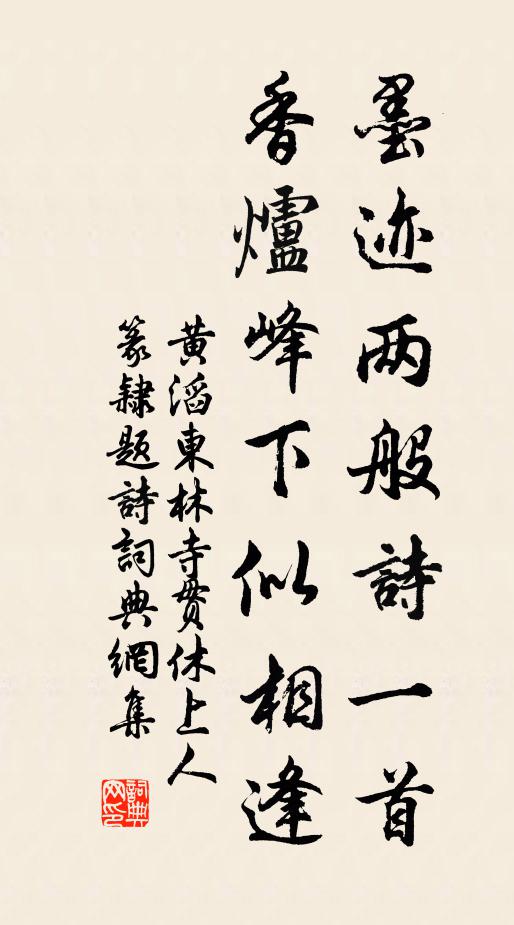 墨迹两般詩一首
香爐峰下似相逢
黄滔東林寺貫休上人
篆隸題詩詞典網集
詞典网印